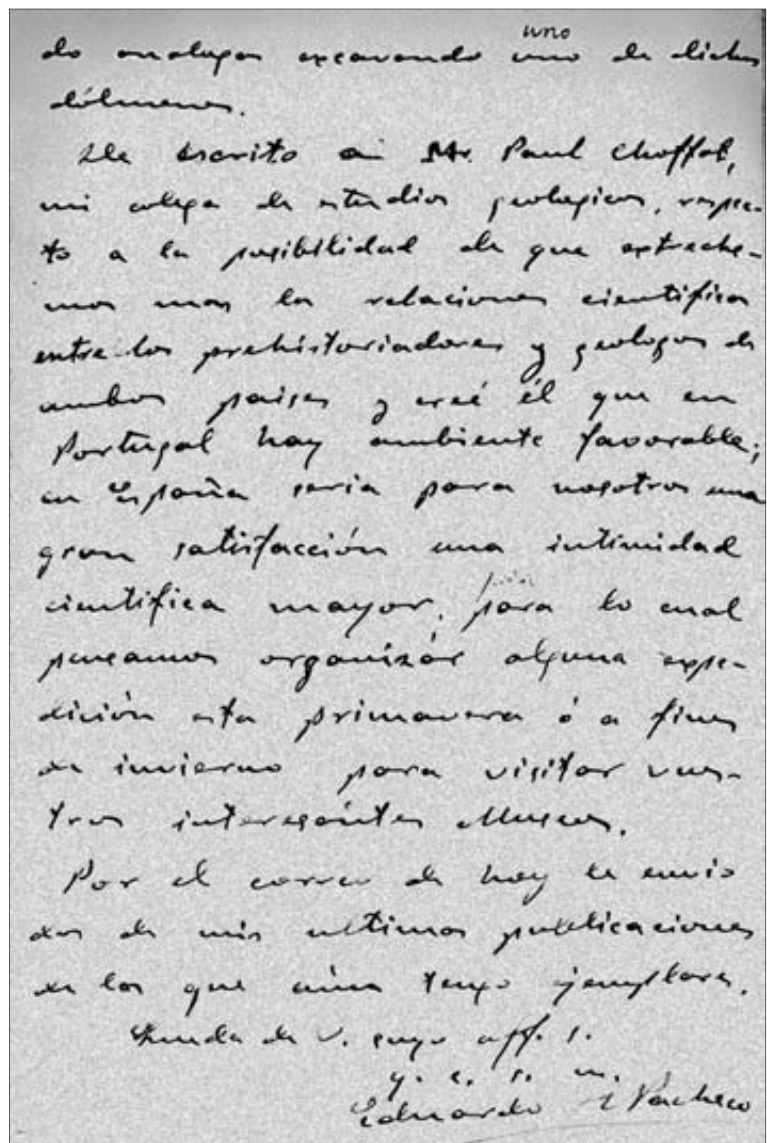 uno
do analogos excavando uno de dichos
dólmenes.
He escrito a Mr. Paul Choffat,
mi colega de estudios geologicos, respec-
to a la posibilidad de que estreche-
mos mas las relaciones cientificas
entre los prehistoriadores y geologos de
ambos paises y creé él que en
Portugal hay ambiente favorable;
en España seria para nosotros una
gran satisfacción una intimidad
cientifica mayor, para lo cual
pensamos organizár alguna expe-
dición esta primavera ó a fines
de invierno para visitar vues-
tros interesántes Museos.
Por el correo de hoy le envio
dos de mis ultimas publicaciones
de las que aún tengo ejemplares.
Queda de V. suyo aff. s.
q. e. s. m.
Eduardo H Pacheco